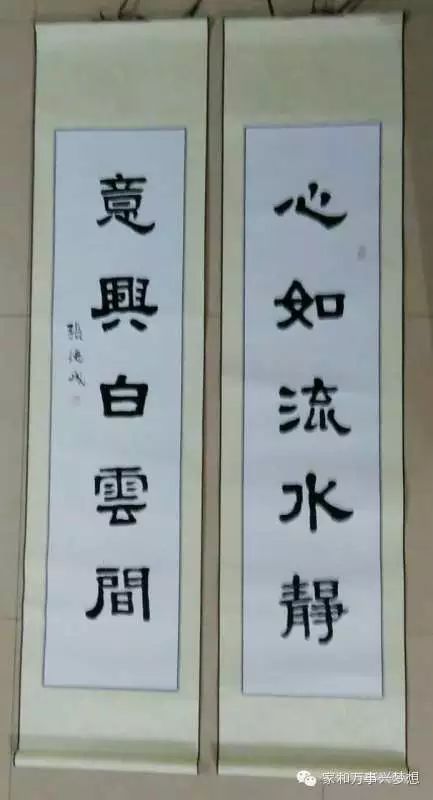 心如流水靜
意興白雲間
家和万事兴梦想